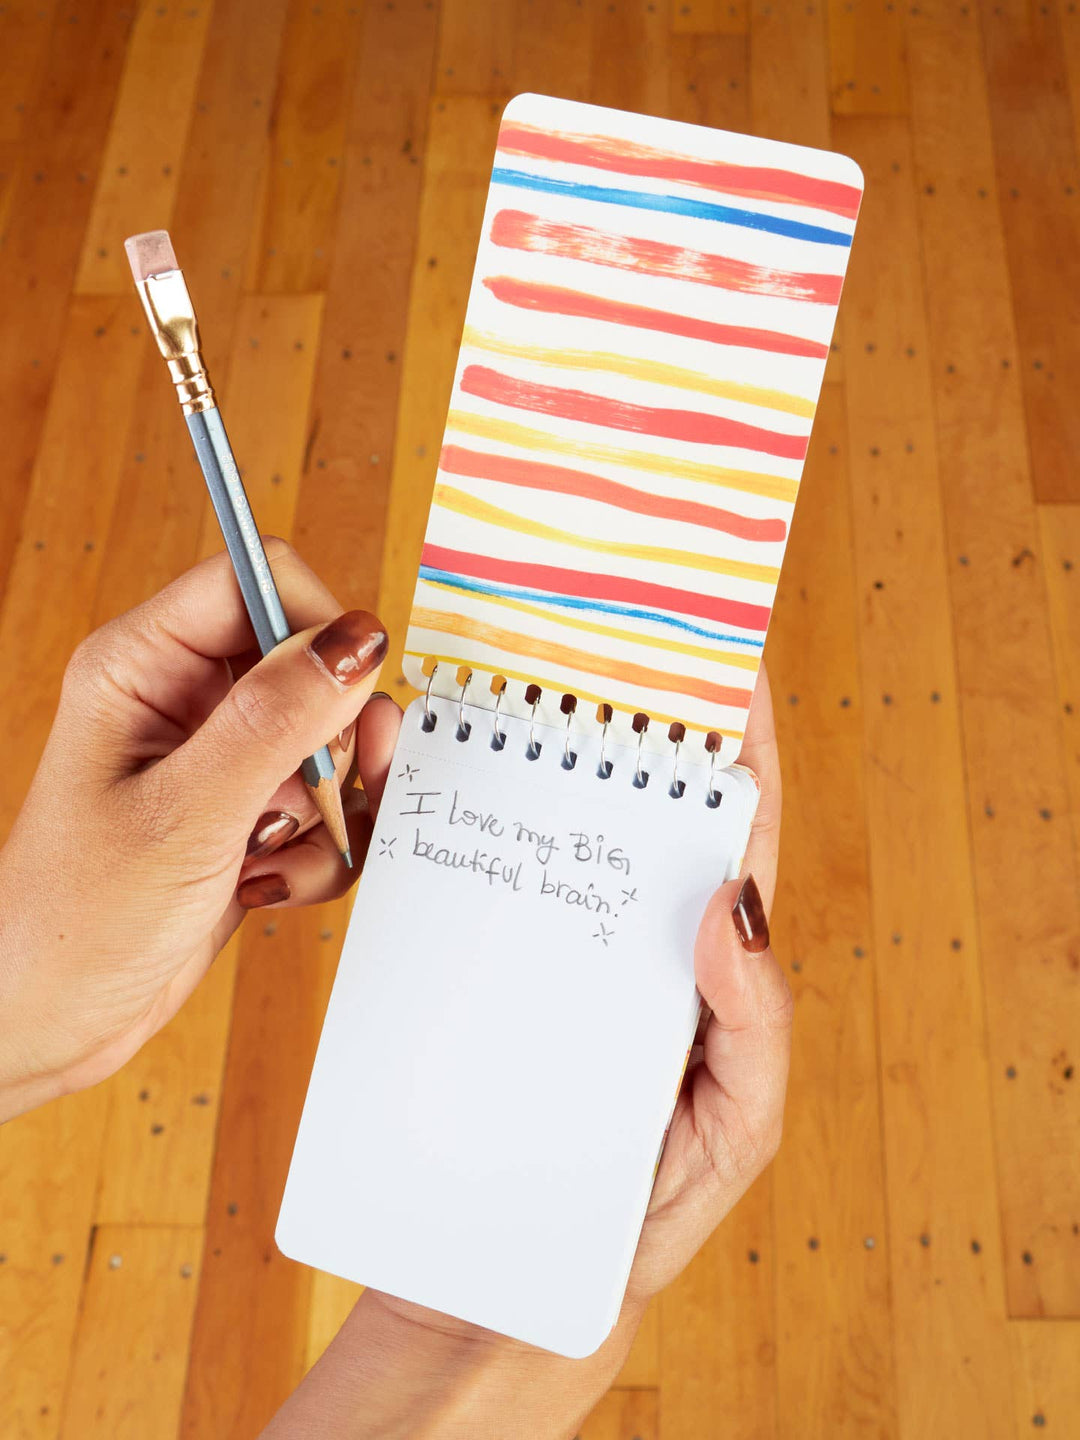 I love my BiG
beautiful brain.